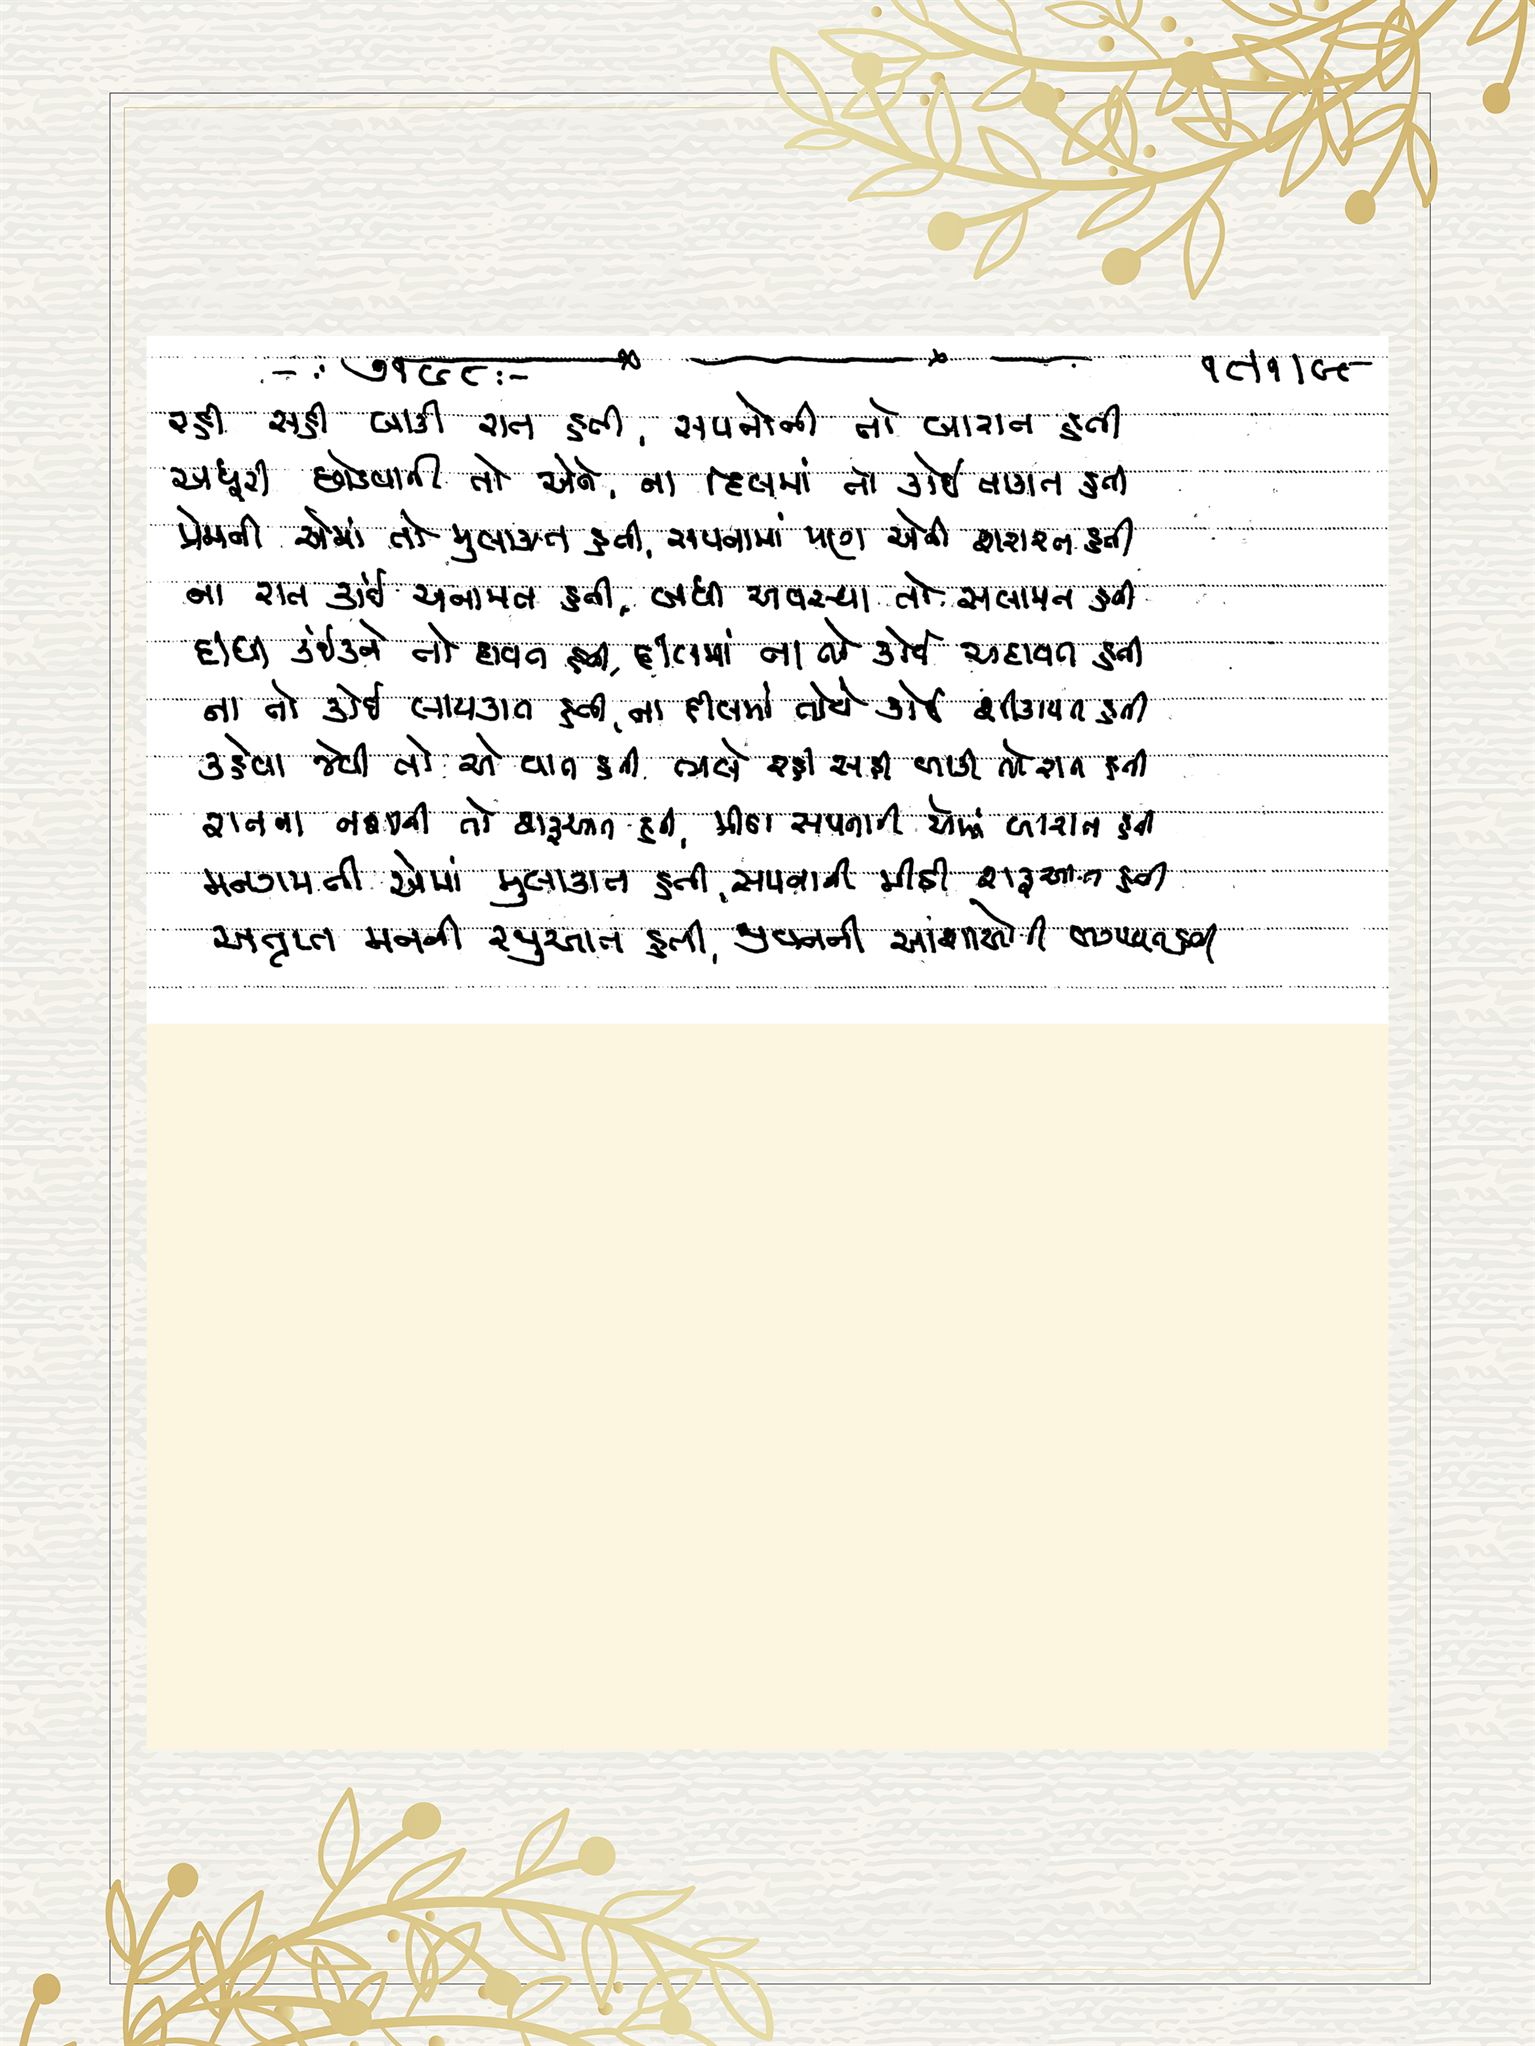 -: ૭૧૬૮ :-
રહી સહી બાકી રાત હતી, સપનોની તો બારાત હતી
અધૂરી છોડવાની તો એને, ના દિલમાં તો કોઈ તાકાત હતી
પ્રેમની એમાં તો મુલાકાત હતી, સપનામાં પણ એની શરારત હતી
ના રાત કોઈ અનામત હતી, બધી અવસ્થા તો સલામત હતી
દીધી કંઈકને તો દાવત હતી, દીલમાં ના તોયે કોઈ અદાવત હતી
ના તો કોઈ લાયકાત હતી, ના દીલમાં તોયે કોઈ શીકાયત હતી
કહેવા જેવી તો એ વાત હતી ભલે રહી સહી બાકી તો રાત હતી
રાતના નશાની તો શરૂઆત હતી, મીઠા સપનાની એમાં બારાત હતી
મનગમતી એમાં મુલાકાત હતી, સપનાની મીઠી શરૂઆત હતી
અતૃપ્ત મનની રજુઆત હતી, જીવનની આશાઓની હતી